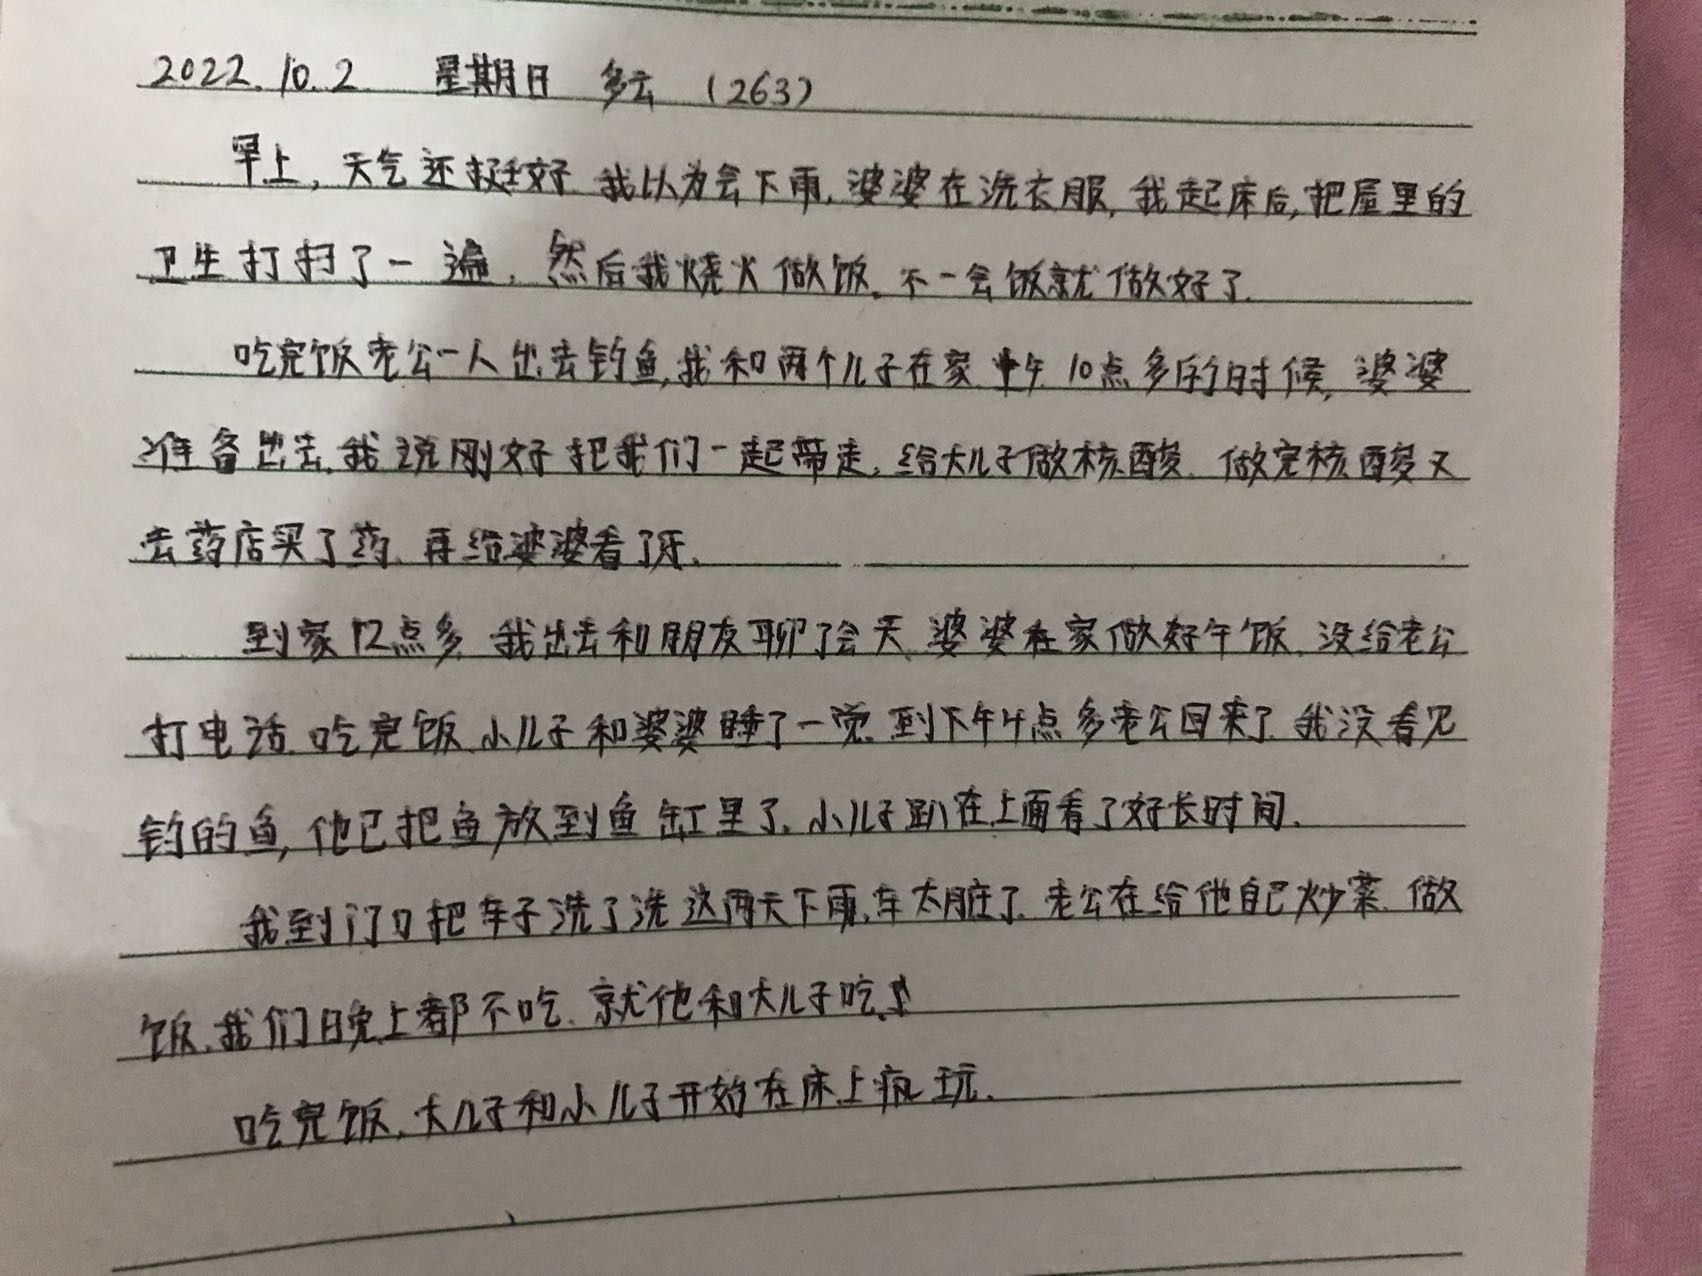 2022.10.2 星期日 多云 (263)
早上,天气还挺好.我以为会下雨.婆婆在洗衣服,我起床后,把屋里的
卫生打扫了一遍.然后我烧火做饭.不一会饭就做好了.
吃完饭老公一人出去钓鱼,我和两个儿子在家.中午10点多的时候,婆婆
准备出去.我说刚好把我们一起带走.给大儿子做核酸.做完核酸又
去药店买了药.再给婆婆看了牙.
到家12点多.我出去和朋友聊了会天.婆婆在家做好午饭.没给老公
打电话.吃完饭.小儿子和婆婆睡了一觉.到下午4点多老公回来了.我没看见
钓的鱼,他已把鱼放到鱼缸里了.小儿子趴在上面看了好长时间.
我到门口把车子洗了洗.这两天下雨,车太脏了.老公在给他自己炒菜.做
饭.我们晚上都不吃.就他和大儿子吃.
吃完饭.大儿子和小儿子开始在床上疯玩.